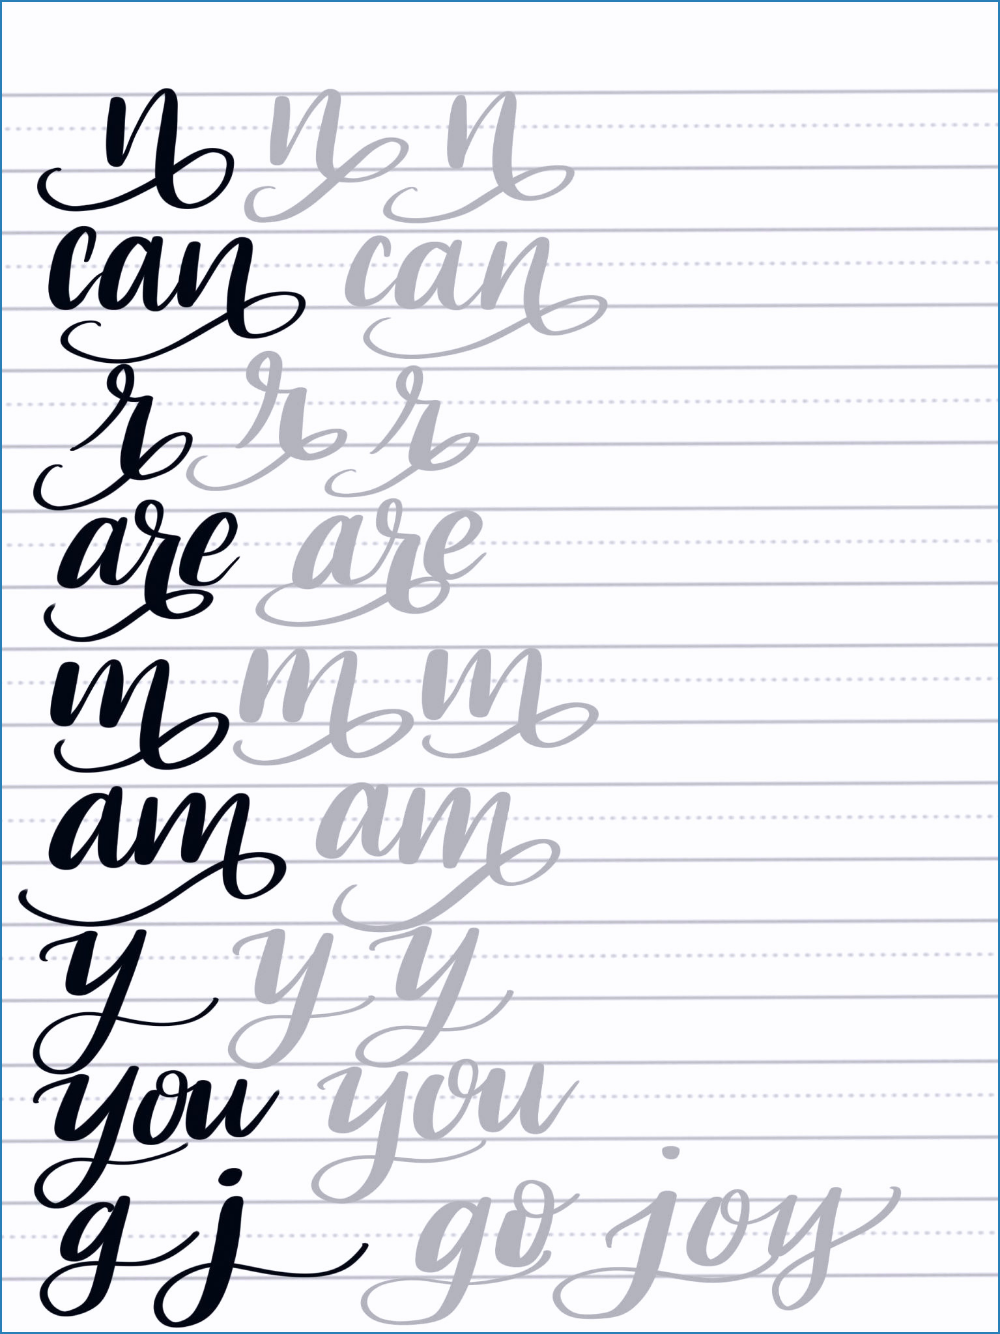 n n n
can can
r r r
are are
m m m
am am
y y y
you you
g j go joy